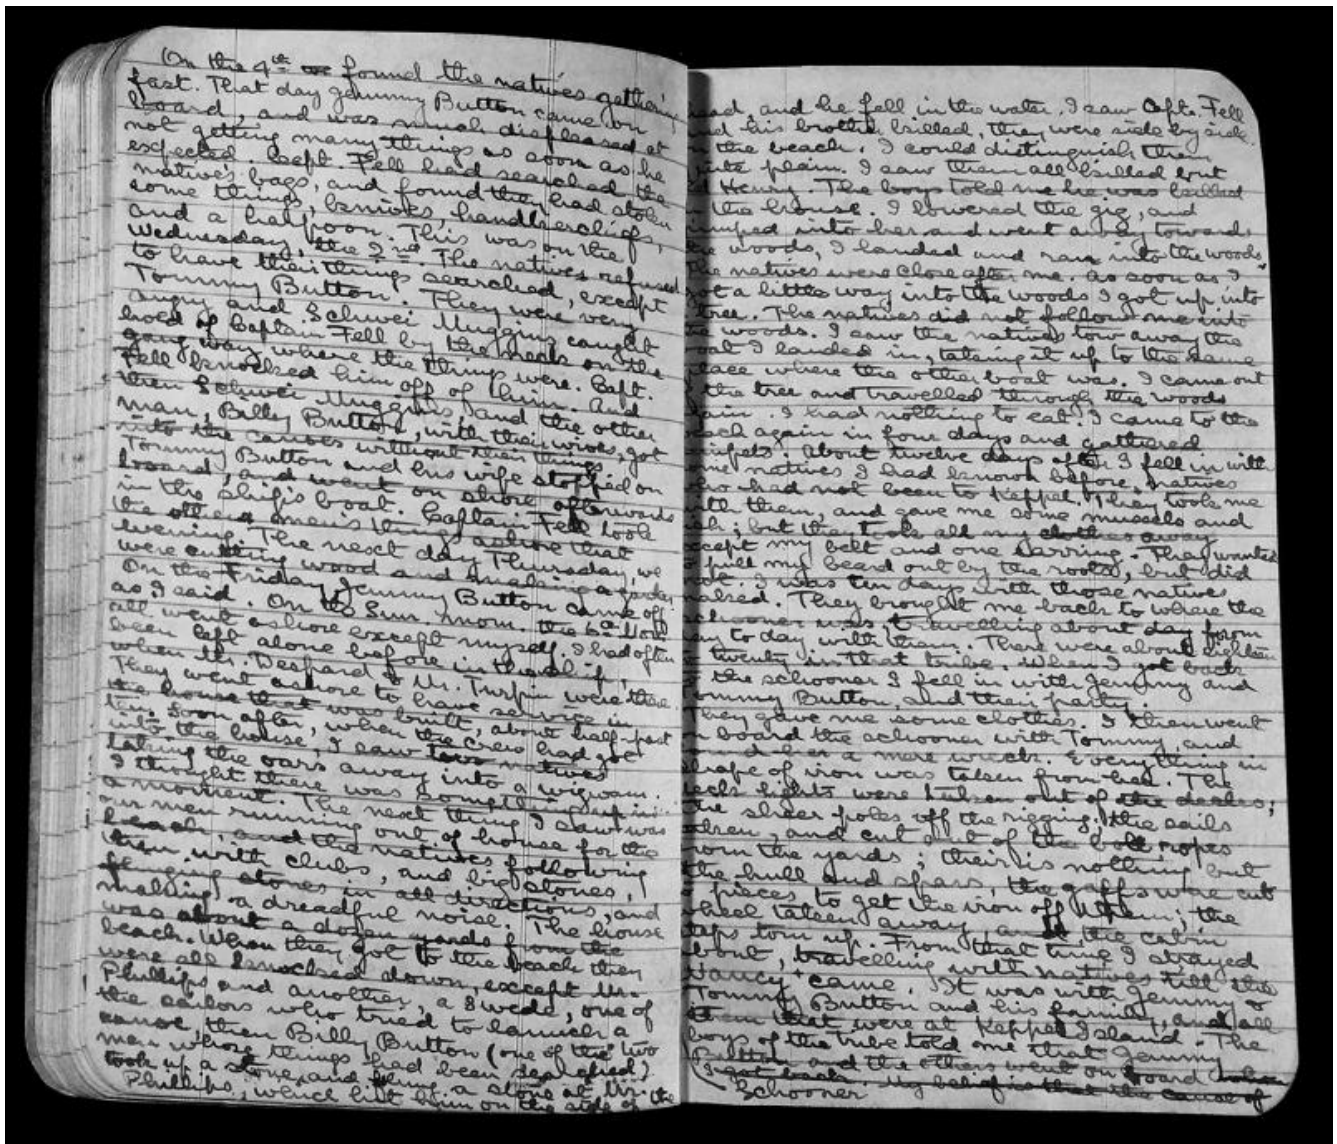 On the 4th found the natives gathering
fast. That day Jemmy Button came on
board, and was much displeased at
not getting many things as soon as he
expected. Capt. Fell had searched the
natives bags, and found they had stolen
some things, knives, handkerchiefs,
and a harpoon. This was on the
Wednesday, the 2nd. The natives refused
to have their things searched, except
Tommy Button. They were very
angry and Schwei Muggins caught
hold of Captain Fell by the neck on the
gangway where the things were. Capt.
Fell knocked him off of him. And
then Schwei Muggins, and the other
man, Billy Button, with their wives, got
into the canoes without their things
Tommy Button and his wife stopped on
board, and went on shore afterwards
in the ship's boat. Captain Fell took
the other men's things ashore that
evening. The next day Thursday, we
were cutting wood and making a garden
On the Friday Jemmy Button came off
as I said. On the Sun. morn. the 6th Nov.
all went ashore except myself. I had often
been left alone before in the ship,
when Mr. Despard & Mr. Turpin were there.
They went ashore to have service in
the house that was built, about half-past
ten. Soon after, when the crew had got
into the house, I saw two natives
taking the oars away into a wigwam.
I thought there was something up in
a moment. The next thing I saw was
our men running out of house for the
beach, and the natives following
them with clubs, and big stones,
flinging stones in all directions, and
making a dreadful noise. The house
was about a dozen yards from the
beach. When they got to the beach they
were all knocked down, except Mr.
Phillips and another, a Swede, one of
the sailors who tried to launch a
canoe, then Billy Button (one of the two
men whose things had been searched)
took up a stone, and flung a stone at Mr.
Phillips, which hit him on the side of the
head, and he fell in the water. I saw Capt. Fell
and his brother killed, they were side by side
on the beach. I could distinguish them
quite plain. I saw them all killed but
Henry. The boys told me he was killed
in the house. I lowered the gig, and
jumped into her and went away towards
the woods, I landed and ran into the woods,
the natives were close after me. As soon as I
got a little way into the woods I got up into
tree. The natives did not follow me into
the woods. I saw the natives tow away the
boat I landed in, taking it up to the same
place where the other boat was. I came out
the tree and travelled through the woods
again. I had nothing to eat. I came to the
beach again in four days and gathered
limpets. About twelve days after I fell in with
some natives I had known before, natives
who had not been to Keppel. They took me
with them, and gave me some mussels and
fish; but they took all my clothes away
except my belt and one earring. They wanted
to pull my beard out by the roots, but did
not. I was ten days with those natives
naked. They brought me back to where the
schooner was travelling about day from
day to day with them. There were about eighteen
or twenty in that tribe. When I got back
to the schooner I fell in with Jemmy and
Tommy Button, and their party.
They gave me some clothes. I then went
on board the schooner with Tommy, and
found her a mere wreck. Everything in
shape of iron was taken from her. The
deck lights were taken out of the decks;
the sheer poles off the rigging; the sails
stolen, and cut out of the bolt ropes
from the yards; their is nothing but
the hull and spars, the gaffs were cut
to pieces to get the iron off them; the
wheel taken away, and the cabin
steps torn up. From that time I strayed
about, travelling with natives till the
Nancy came. It was with Jemmy &
Tommy Button and his family, and all
them that were at Keppel Island. The
boys of the tribe told me that Jemmy
Button and the others went on board when
(I got back. My belief is that the cause of
Schooner